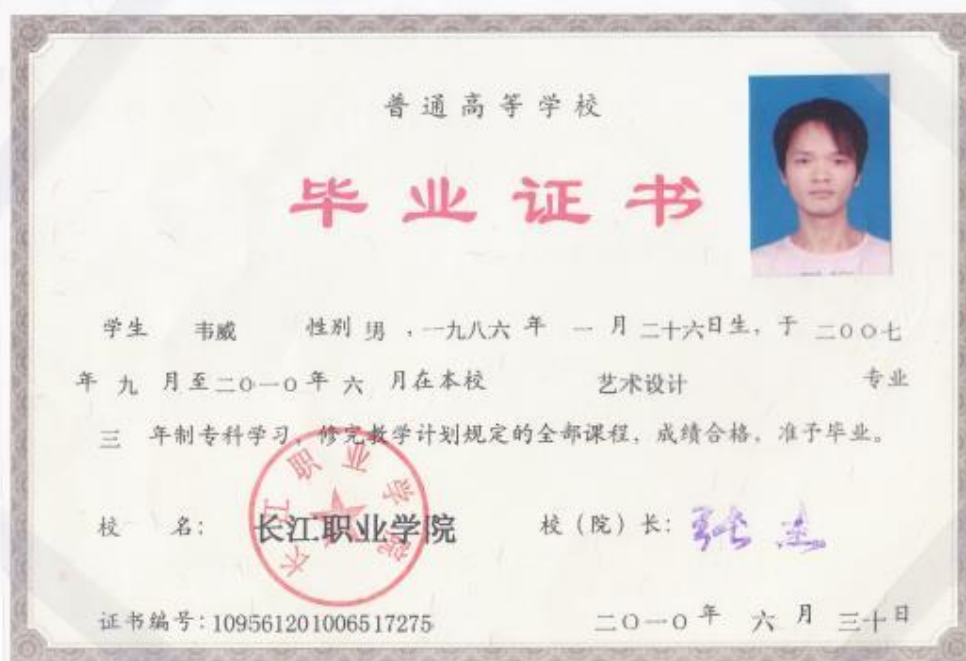 普通高等学校
毕业证书
学生 韦威 性别 男 ,一九八六 年 一 月 二十六日生, 于 二〇〇七
年 九 月至二〇一〇年 六 月在本校 艺术设计 专业
三 年制专科学习, 修完教学计划规定的全部课程, 成绩合格, 准予毕业。
校 名: 长江职业学院 校(院)长: 张杰
长江职业学院
证书编号:109561201006517275 二〇一〇年 六 月 三十日